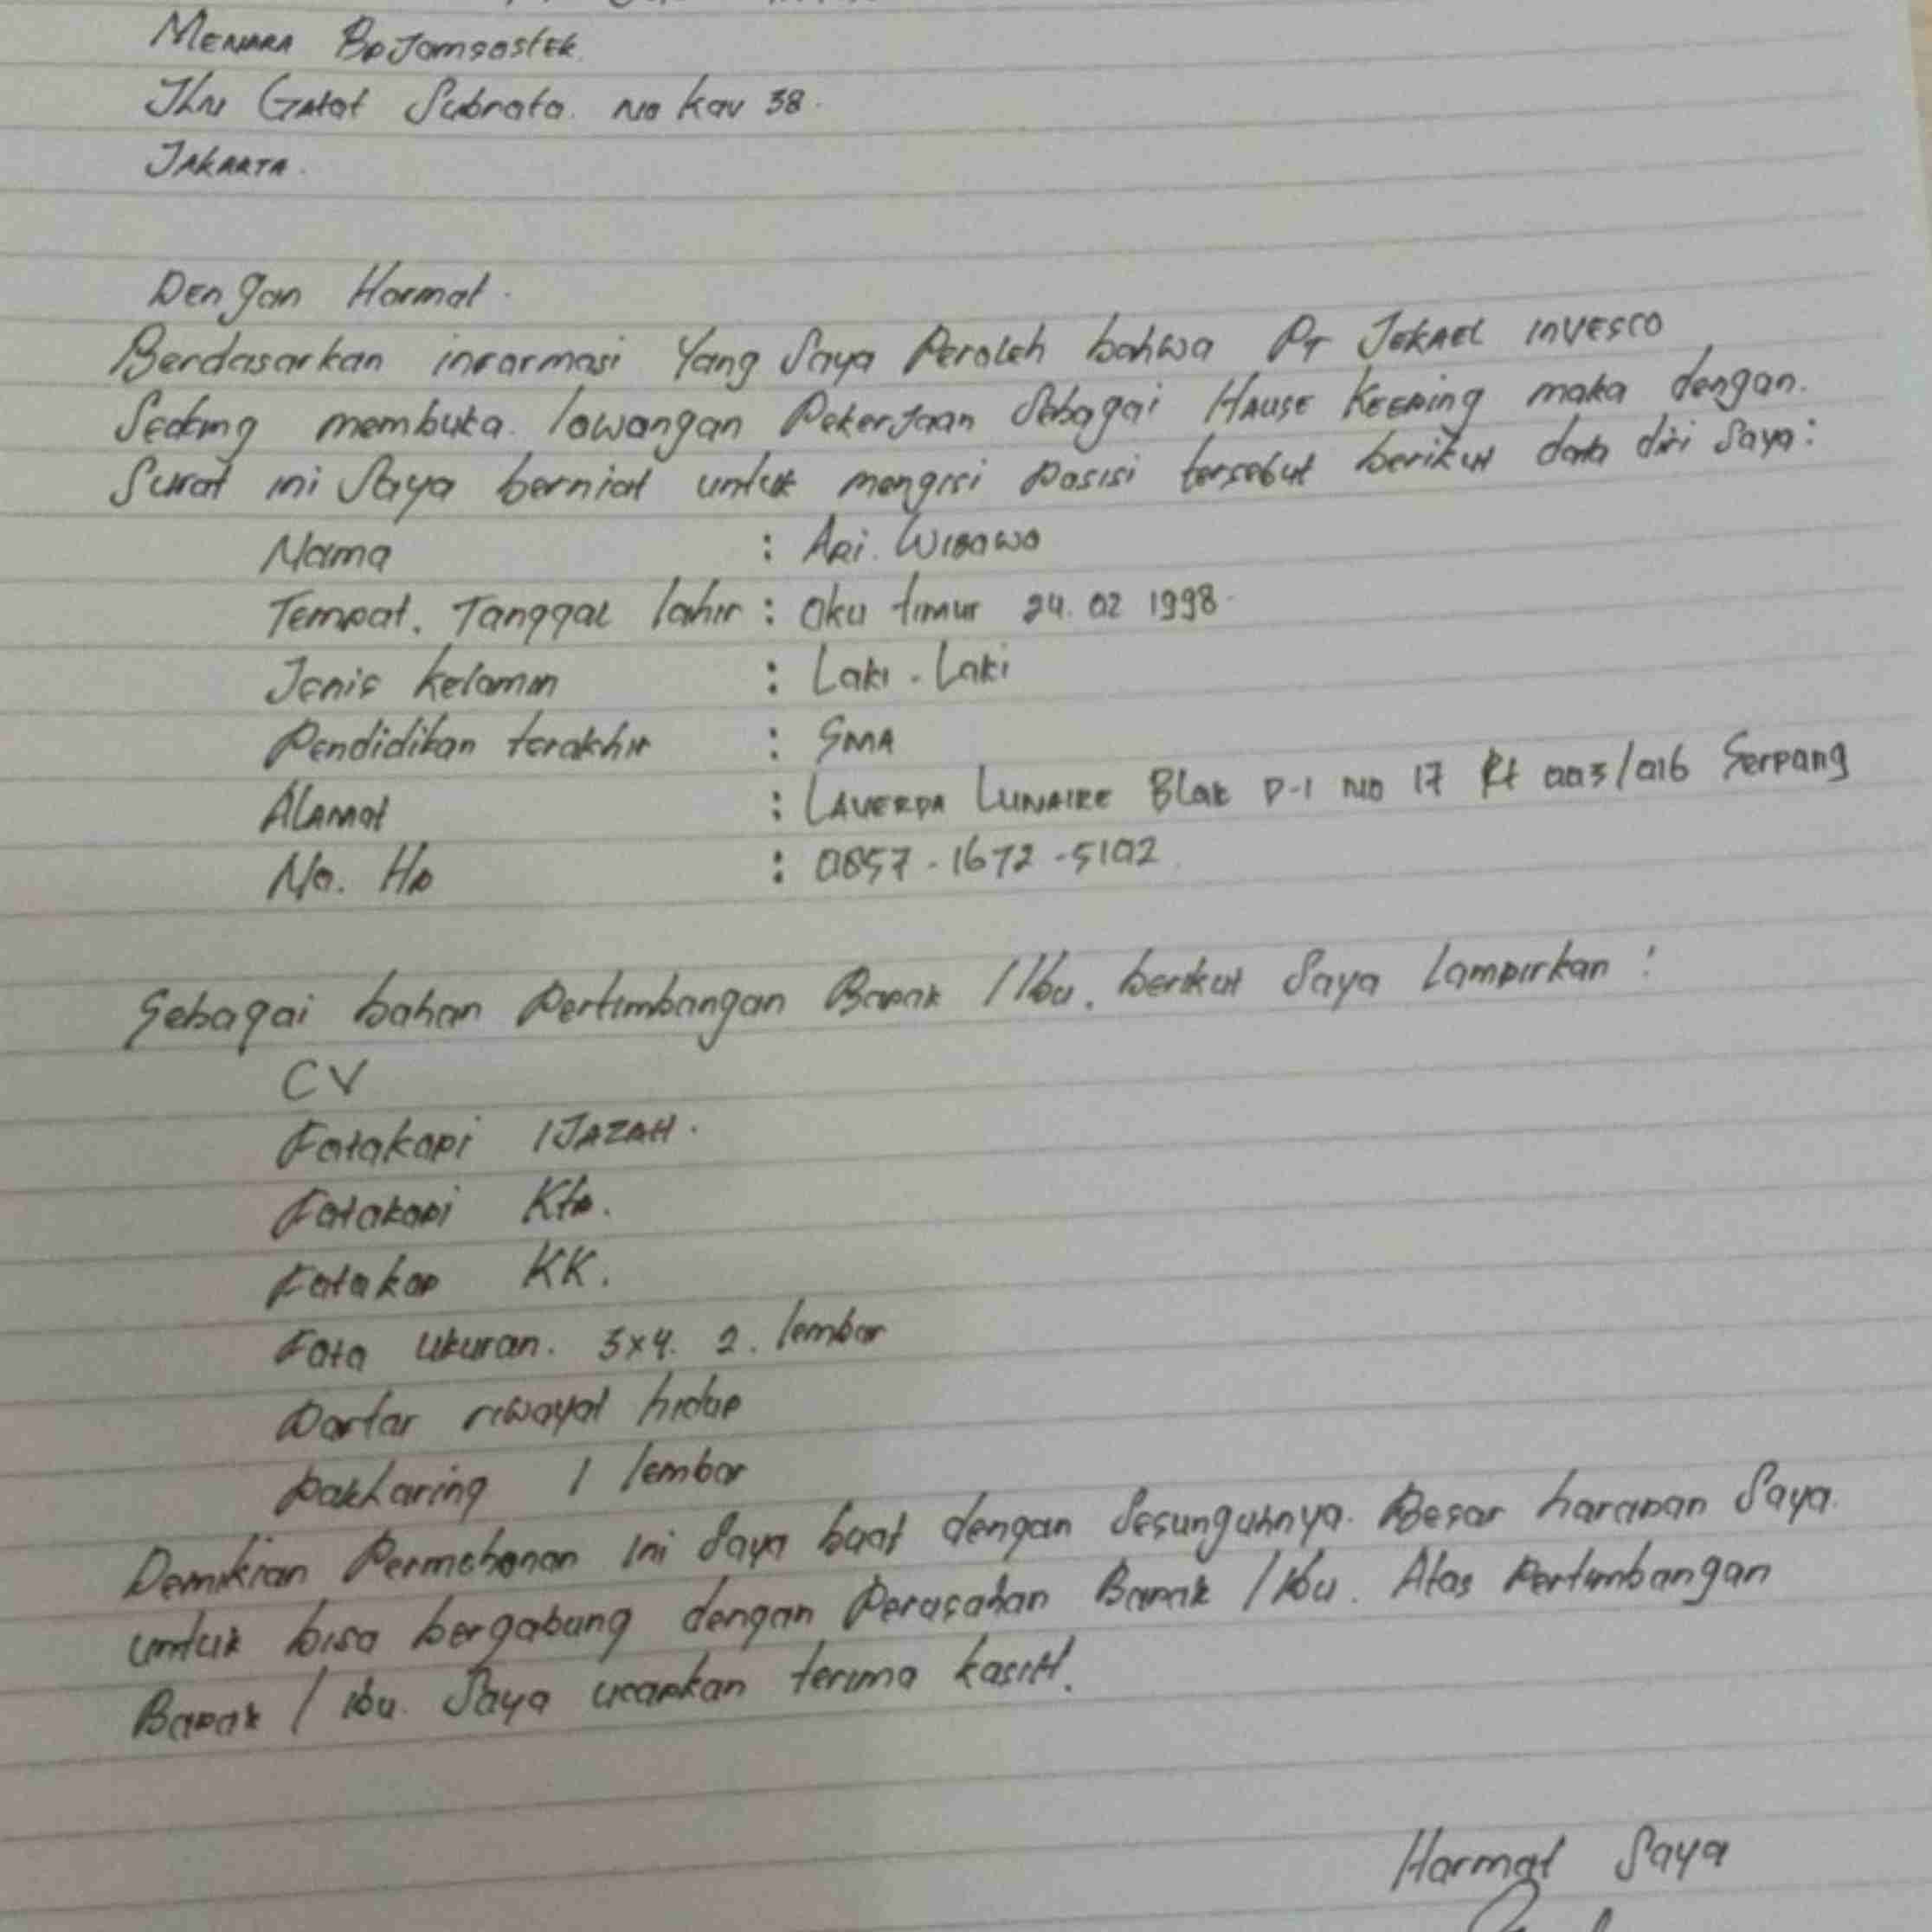 Menara Bpjamsostek.
Jln Gatot Subroto. No Kav 38.
Jakarta.
Dengan Hormat.
Berdasarkan informasi Yang Saya Peroleh bahwa PT Jekael invesco
Sedang membuka lowangan Pekerjaan Sebagai Hause Keeping maka dengan.
Surat ini Saya berniat untuk mengisi posisi tersebut berikut data diri Saya:
Nama : Ari. Wibowo
Tempat. Tanggal lahir : Oku timur 24. 02 1998
Jenis kelamin : Laki - Laki
Pendidikan terakhir : SMA
Alamat : Laverda Lunaire Blok D-1 No 17 Rt 003/016 Serpong
No. Hp : 0857-1672-5102
Sebagai bahan Pertimbangan Bapak / Ibu. berikut Saya Lampirkan :
CV
Fotokopi IJAZAH.
Fotokopi Ktp.
Fotokop KK.
Foto ukuran. 3x4. 2. lembar
Daftar riwayat hidup
pakharing 1 lembar
Demikian Permohonan ini Saya buat dengan Sesunguhnya. Besar harapan Saya.
untuk bisa bergabung dengan Perusahan Bapak / Ibu. Atas Pertimbangan
Bapak / ibu. Saya ucapkan terima kasiH.
Hormat Saya